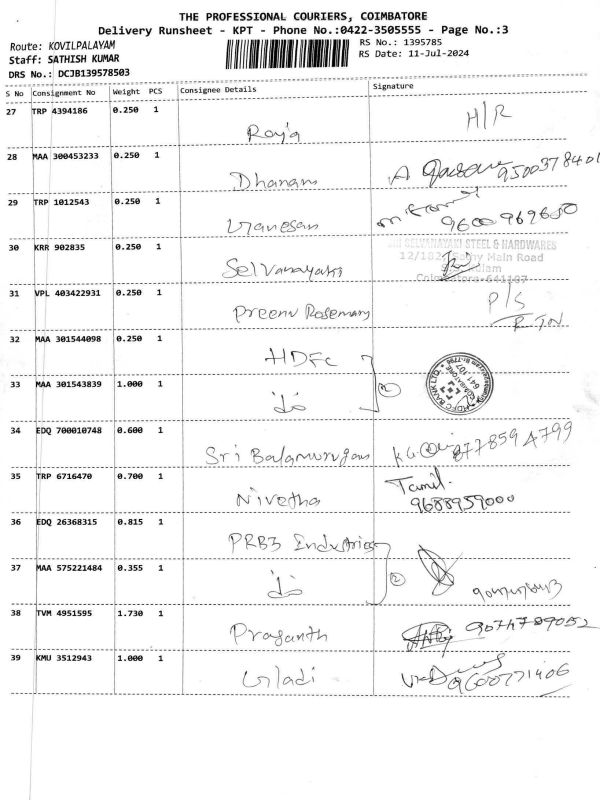 THE PROFESSIONAL COURIERS, COIMBATORE
Delivery Runsheet - KPT - Phone No.:0422-3505555 - Page No.:3
Route: KOVILPALAYAM
RS No.: 1395785
Staff: SATHISH KUMAR
RS Date: 11-Jul-2024
DRS No.: DCJB139578503
S No Consignment No Weight PCS Consignee Details Signature
27 TRP 4394186 0.250 1 Roja H/R
28 MAA 300453233 0.250 1 Dhanam A 9500378401
29 TRP 1012543 0.250 1 Ganesan 9600969680
30 KRR 902835 0.250 1 Selvanayaki
SRI SELVANAYAKI STEEL & HARDWARES
Main Road
641107
31 VPL 403422931 0.250 1 Preenu Rosemary P/S
RTN
32 MAA 301544098 0.250 1 HDFC
HDFC BANK LTD.
641 107
33 MAA 301543839 1.000 1 do 2
34 EDQ 700010748 0.600 1 Sri Balamurugan 8778594799
35 TRP 6716470 0.700 1 Nivetha Tamil.
9688959000
36 EDQ 26368315 0.815 1 PRB3 Industries
37 MAA 575221484 0.355 1 do 2
38 TVM 4951595 1.730 1 Prasanth 9074789052
39 KMU 3512943 1.000 1 Gladi 9600771406